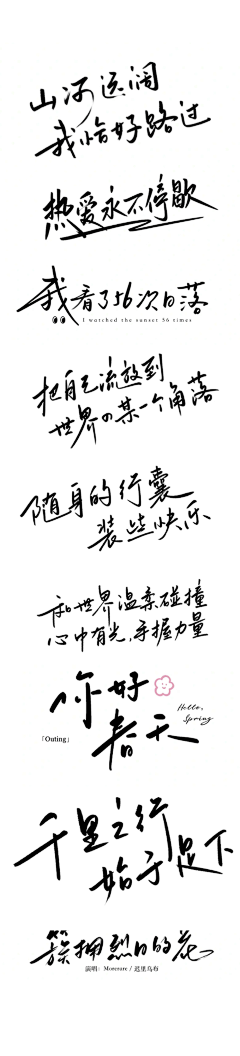 山河远阔
我恰好路过
热爱永不停歇
我看了56次日落
I watched the sunset 56 times
把自己流放到
世界の某一个角落
随身的行囊
装些快乐
和世界温柔碰撞
心中有光,手握力量
你好
Hello,
Spring
「Outing」
春天
千里之行
始于足下
簇拥烈日的花
演唱：Morerare / 迟里乌布